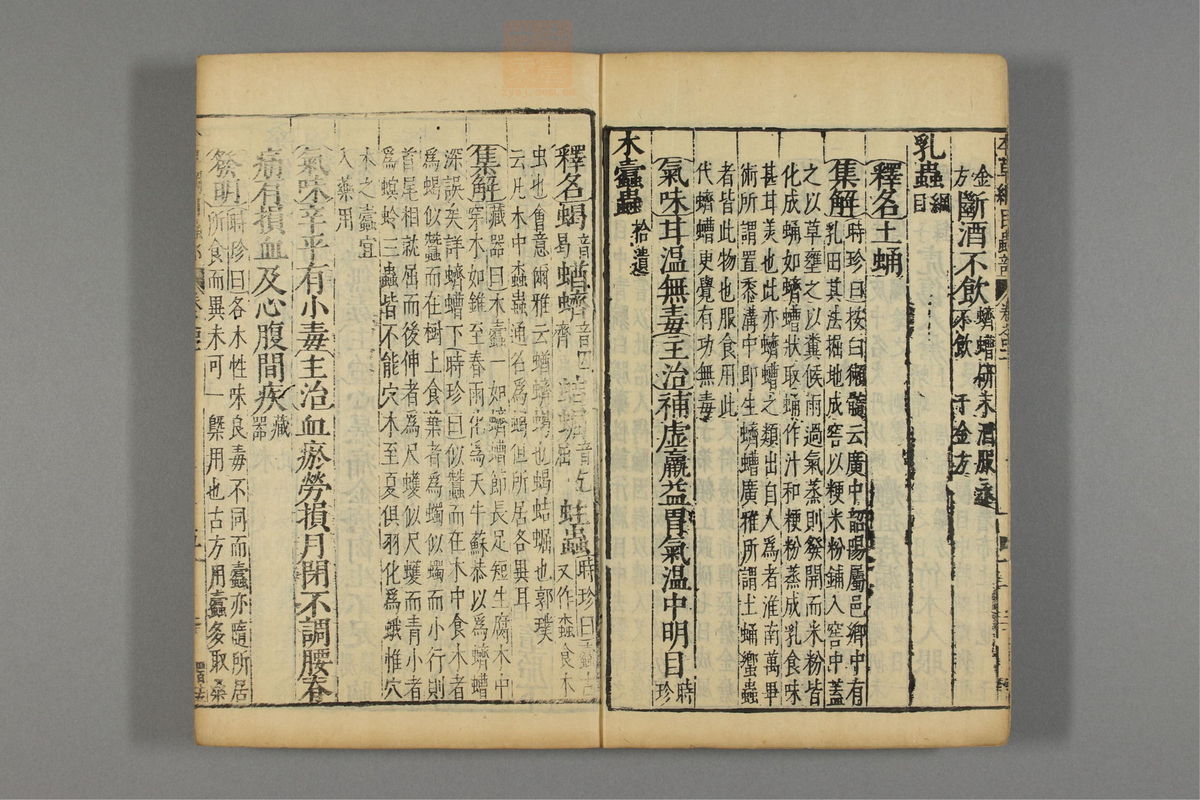 方金斷酒不飲蠐螬研末酒服永不飲千金方
乳蟲綱目
釋名土蛹
集解時珍曰按白獺髓云廣中韶陽屬邑鄉中有
乳田其法掘地成窖以粳米粉鋪入窖中蓋
之以草壅之以糞候雨過氣蒸則發開而米粉皆
化成蛹如蠐螬狀取蛹作汁和粳粉蒸成乳食味
甚甘美也此亦蠐螬之類出自人爲者淮南萬畢
術所謂置黍溝中即生蠐螬廣雅所謂土蛹蠁蟲
者皆此物也服食用此
代蠐螬更覺有功無毒
氣味甘溫無毒主治補虛羸益胃氣溫中明目時珍
木蠹蟲拾遺
釋名蝎音曷蝤蠐音囚齊蛣𧌑音乞屈蛀蟲時珍曰蠹古
又作螙食木
虫也會意爾雅云蝤蠐蝎也蝎蛣𧌑也郭璞
云凡木中蠹蟲通名爲蝎但所居各異耳
集解藏器曰木蠹一如蠐螬節長足短生腐木中
穿木如錐至春雨化爲天牛蘇恭以爲蠐螬
深誤矣詳蠐螬下時珍曰似蠶而在木中食木者
爲蝎似蠶而在樹上食葉者爲蠋似蠋而小行則
首尾相就屈而後伸者爲尺蠖似尺蠖而青小者
爲螟蛉三蟲皆不能穴木至夏俱羽化爲蛾惟穴
木之蠹宜
入藥用
氣味辛平有小毒主治血瘀勞損月閉不調腰脊
痛有損血及心腹間疾藏器
發明時珍曰各木性味良毒不同而蠹亦隨所居
所食而異未可一槩用也古方用蠹多取桑